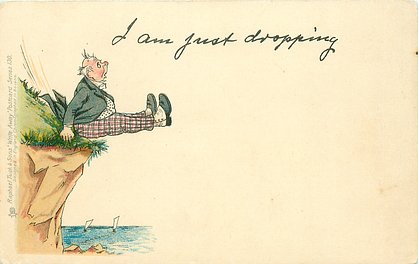 I am just dropping
Raphael Tuck & Sons' "Write Away" Postcard Series 130.